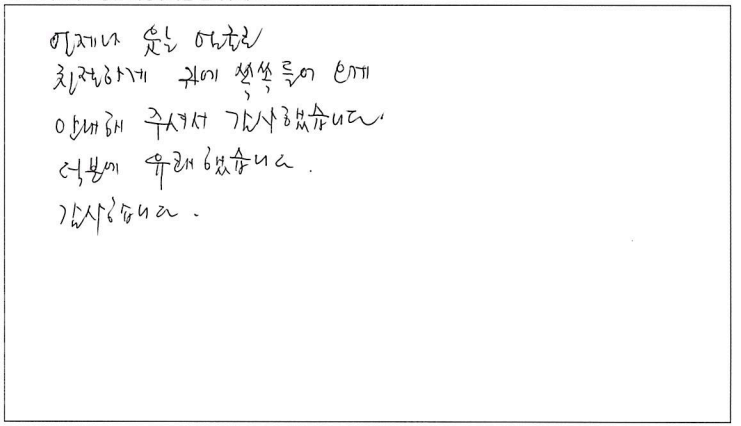 언제나 웃는 얼굴로
친절하게 귀에 쏙쏙 들어 오게
안내해 주셔서 감사했습니다.
덕분에 유쾌했습니다.
감사합니다.